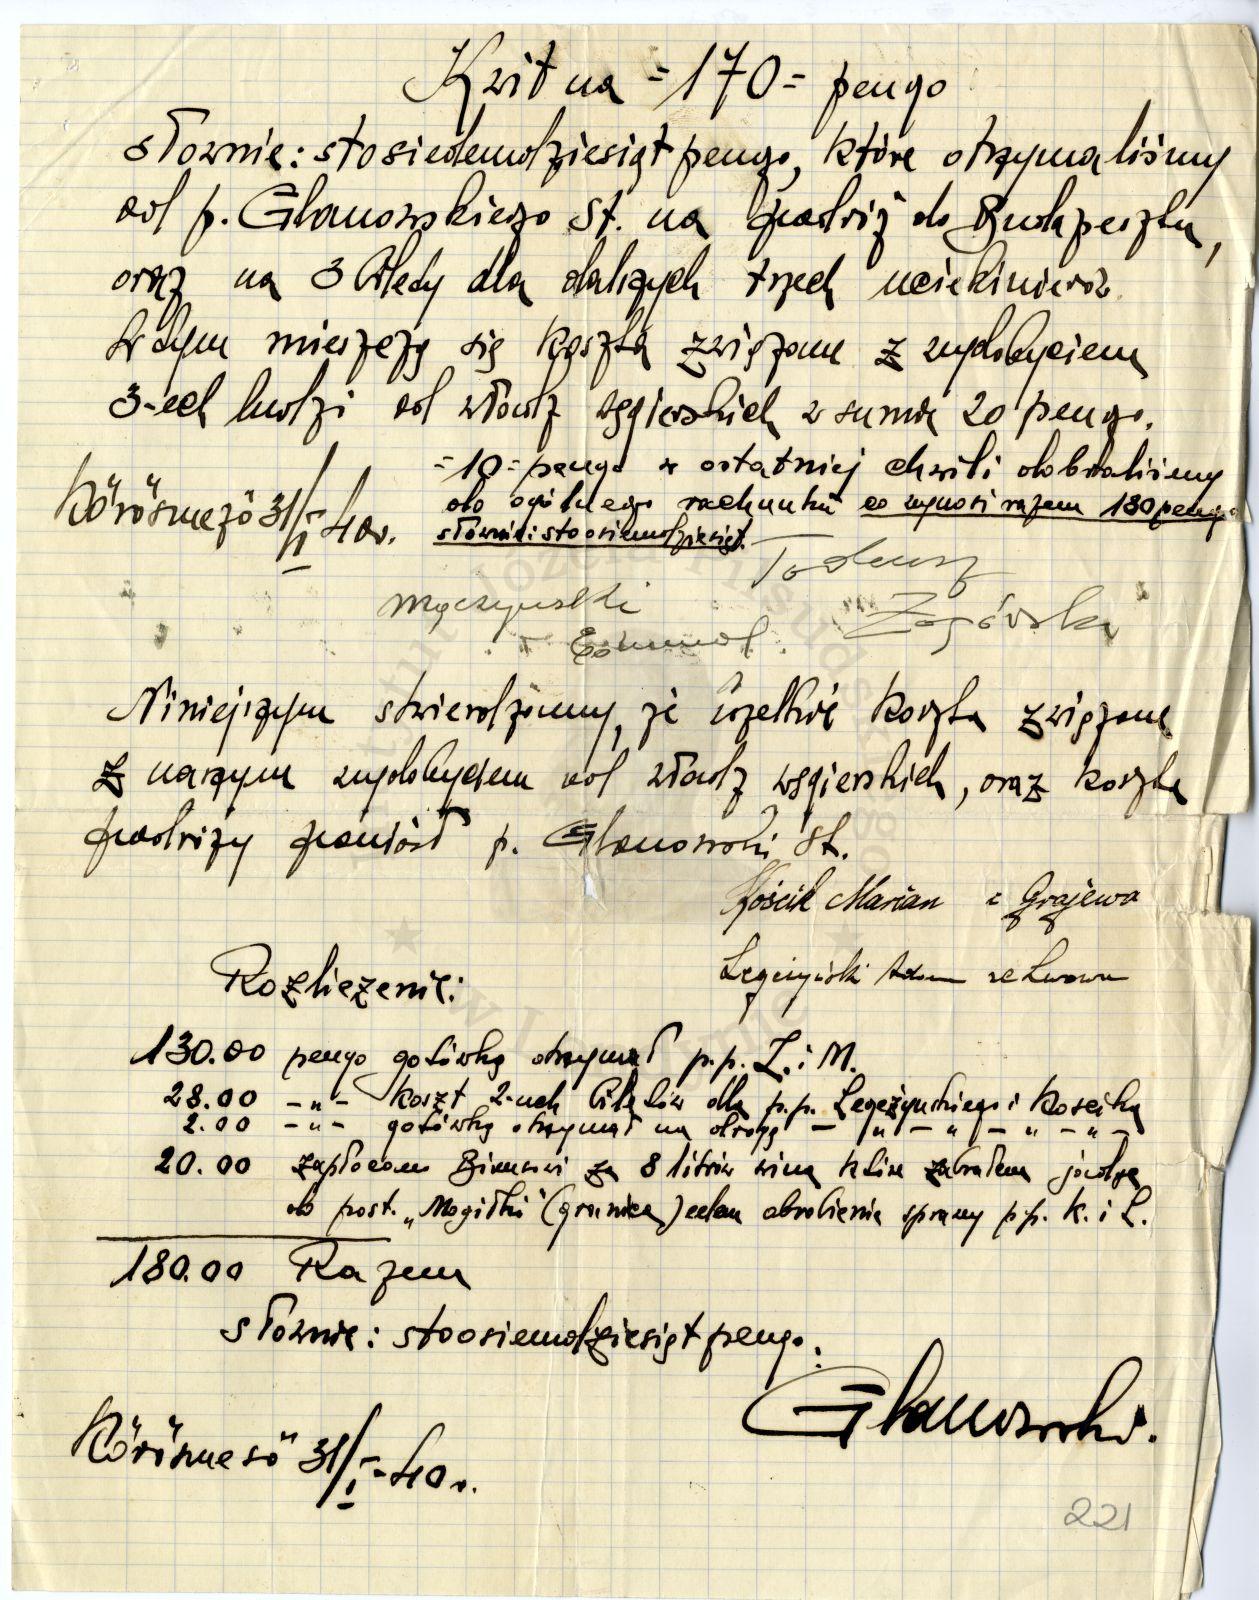 Kwit na =170= pengo
słownie: stosiedemdziesiąt pengo, które otrzymaliśmy
od p. Glanowskiego St. na podróż do Budapesztu,
oraz na 3 bilety dla dalszych trzech uciekinierów
W tym mieszczą się koszta związane z wydobyciem
3-ech ludzi od władz węgierskich w sumie 20 pengo.
=10= pengo w ostatniej chwili dobraliśmy
do ogólnego rachunku co wynosi razem 180 pengo
słownie: stoosiemdziesiąt.
Körösmezö 31/I 40r.
Tadeusz
Mączyński
Zagórski
Edmund.
Niniejszym stwierdzamy, że wszelkie koszta związane
z naszym wydobyciem od władz węgierskich, oraz koszta
podróży poniósł p. Glanowski St.
Kościk Marian z Grajewa
Legeżyński Adam ze Lwowa
Rozliczenie:
130.00 pengo gotówką otrzymał p.p. Z. i M.
28.00 -"- koszt 2-uch biletów dla p.p. Legeżyńskiego i Kościka
2.00 -"- gotówką otrzymał na drogę - " - " - " - " -
20.00 zapłacono za 8 litrów wina które zabrałem jadąc
do post. "Mogiłki" (granica) celem obrobienia sprawy p.p. K. i L.
180.00 Razem
słownie: stoosiemdziesiąt pengo.
Glanowski.
Körösmesö 31/I-40r.
221